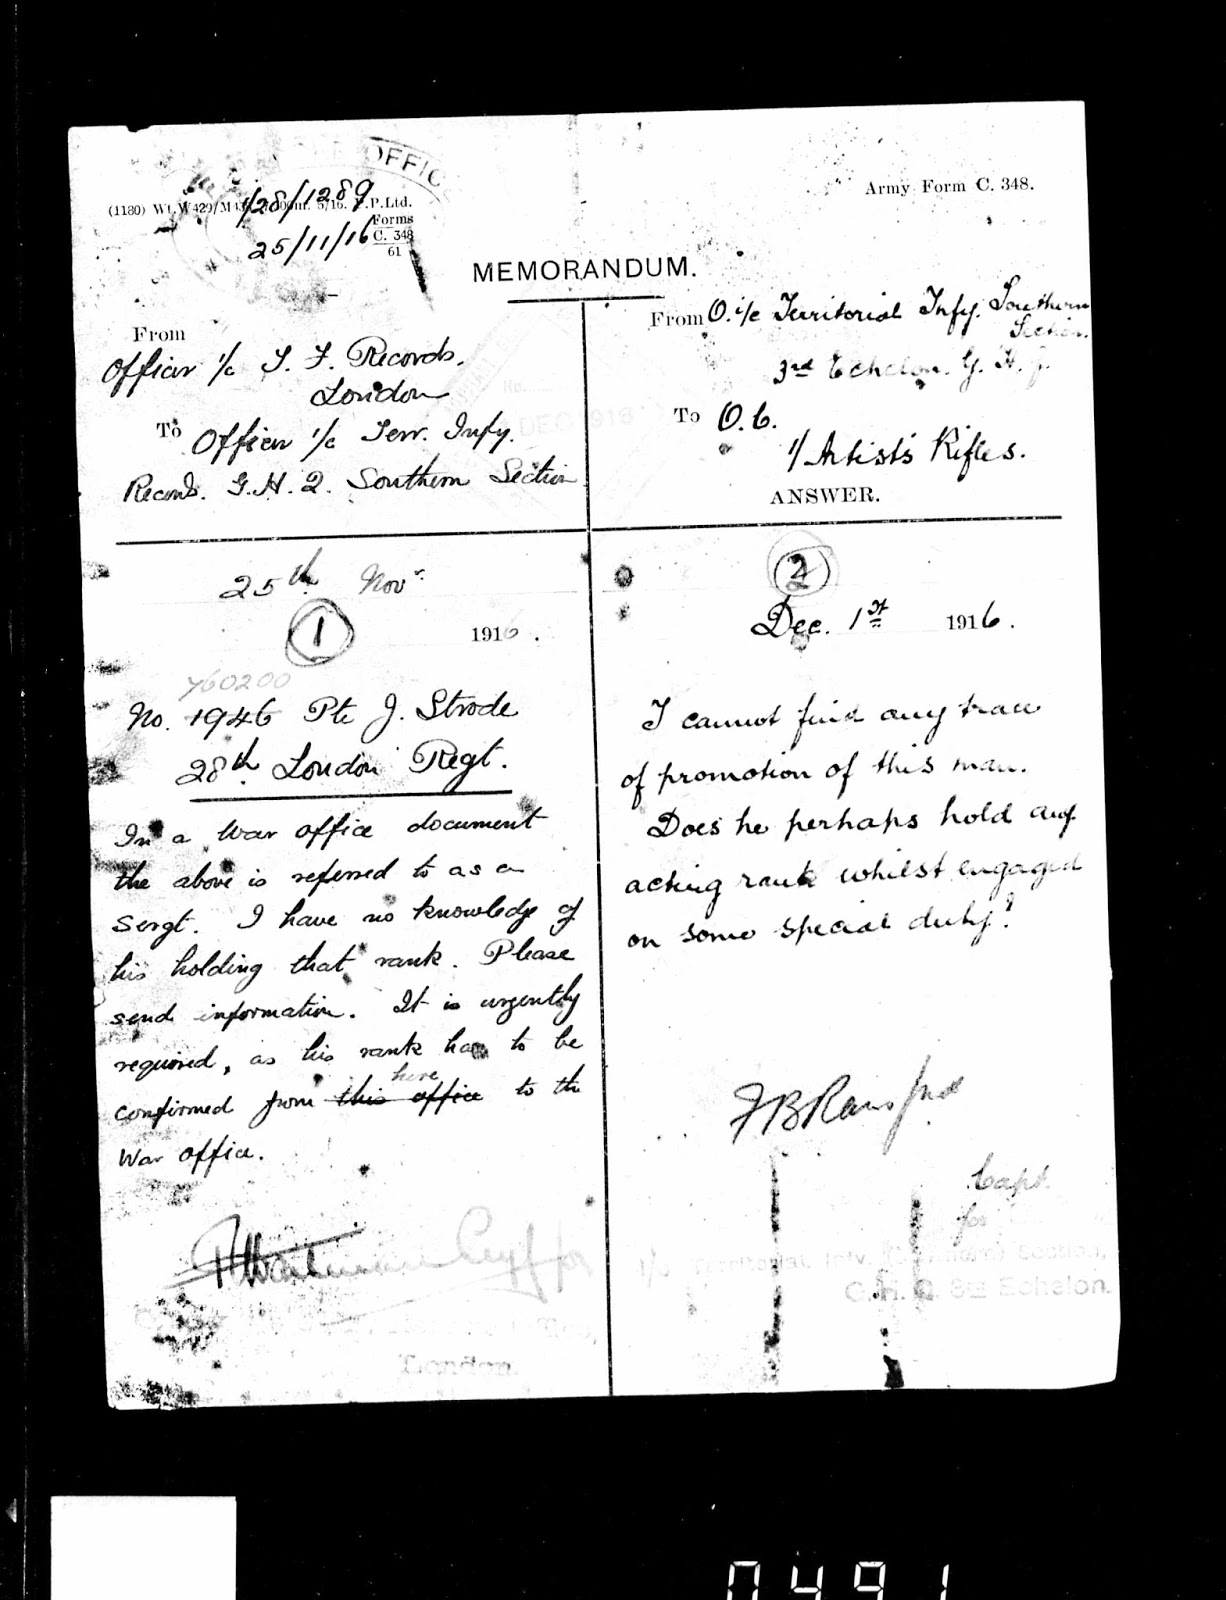 OFFIC
Army Form C. 348.
1/28/1289
(1180) Wt. W429/M43 5/16. P.P.Ltd.
Forms
C. 348
61
25/11/16
MEMORANDUM.
From
Officer i/c T. F. Records.
London
To Officer i/c Terr. Infy.
Records. G.H.Q. Southern Section
DEC 1916
25th Novr.
1
1916.
760200
No. 1946 Pte J. Strode
28th London Regt.
In a War office document
the above is referred to as a
Sergt. I have no knowledge of
his holding that rank. Please
send information. It is urgently
required, as his rank has to be
here
confirmed from this office to the
War office.
London.
From O. i/c Territorial Infy. Southern
Section.
3rd Echelon. G. H. Q.
To O.C.
1/Artists Rifles.
ANSWER.
2
Dec. 1st 1916.
I cannot find any trace
of promotion of this man.
Does he perhaps hold any
acting rank whilst engaged
on some special duty?
Capt.
for
Territorial Infy. (Southern) Section,
G.H.Q. 3rd Echelon.
0491